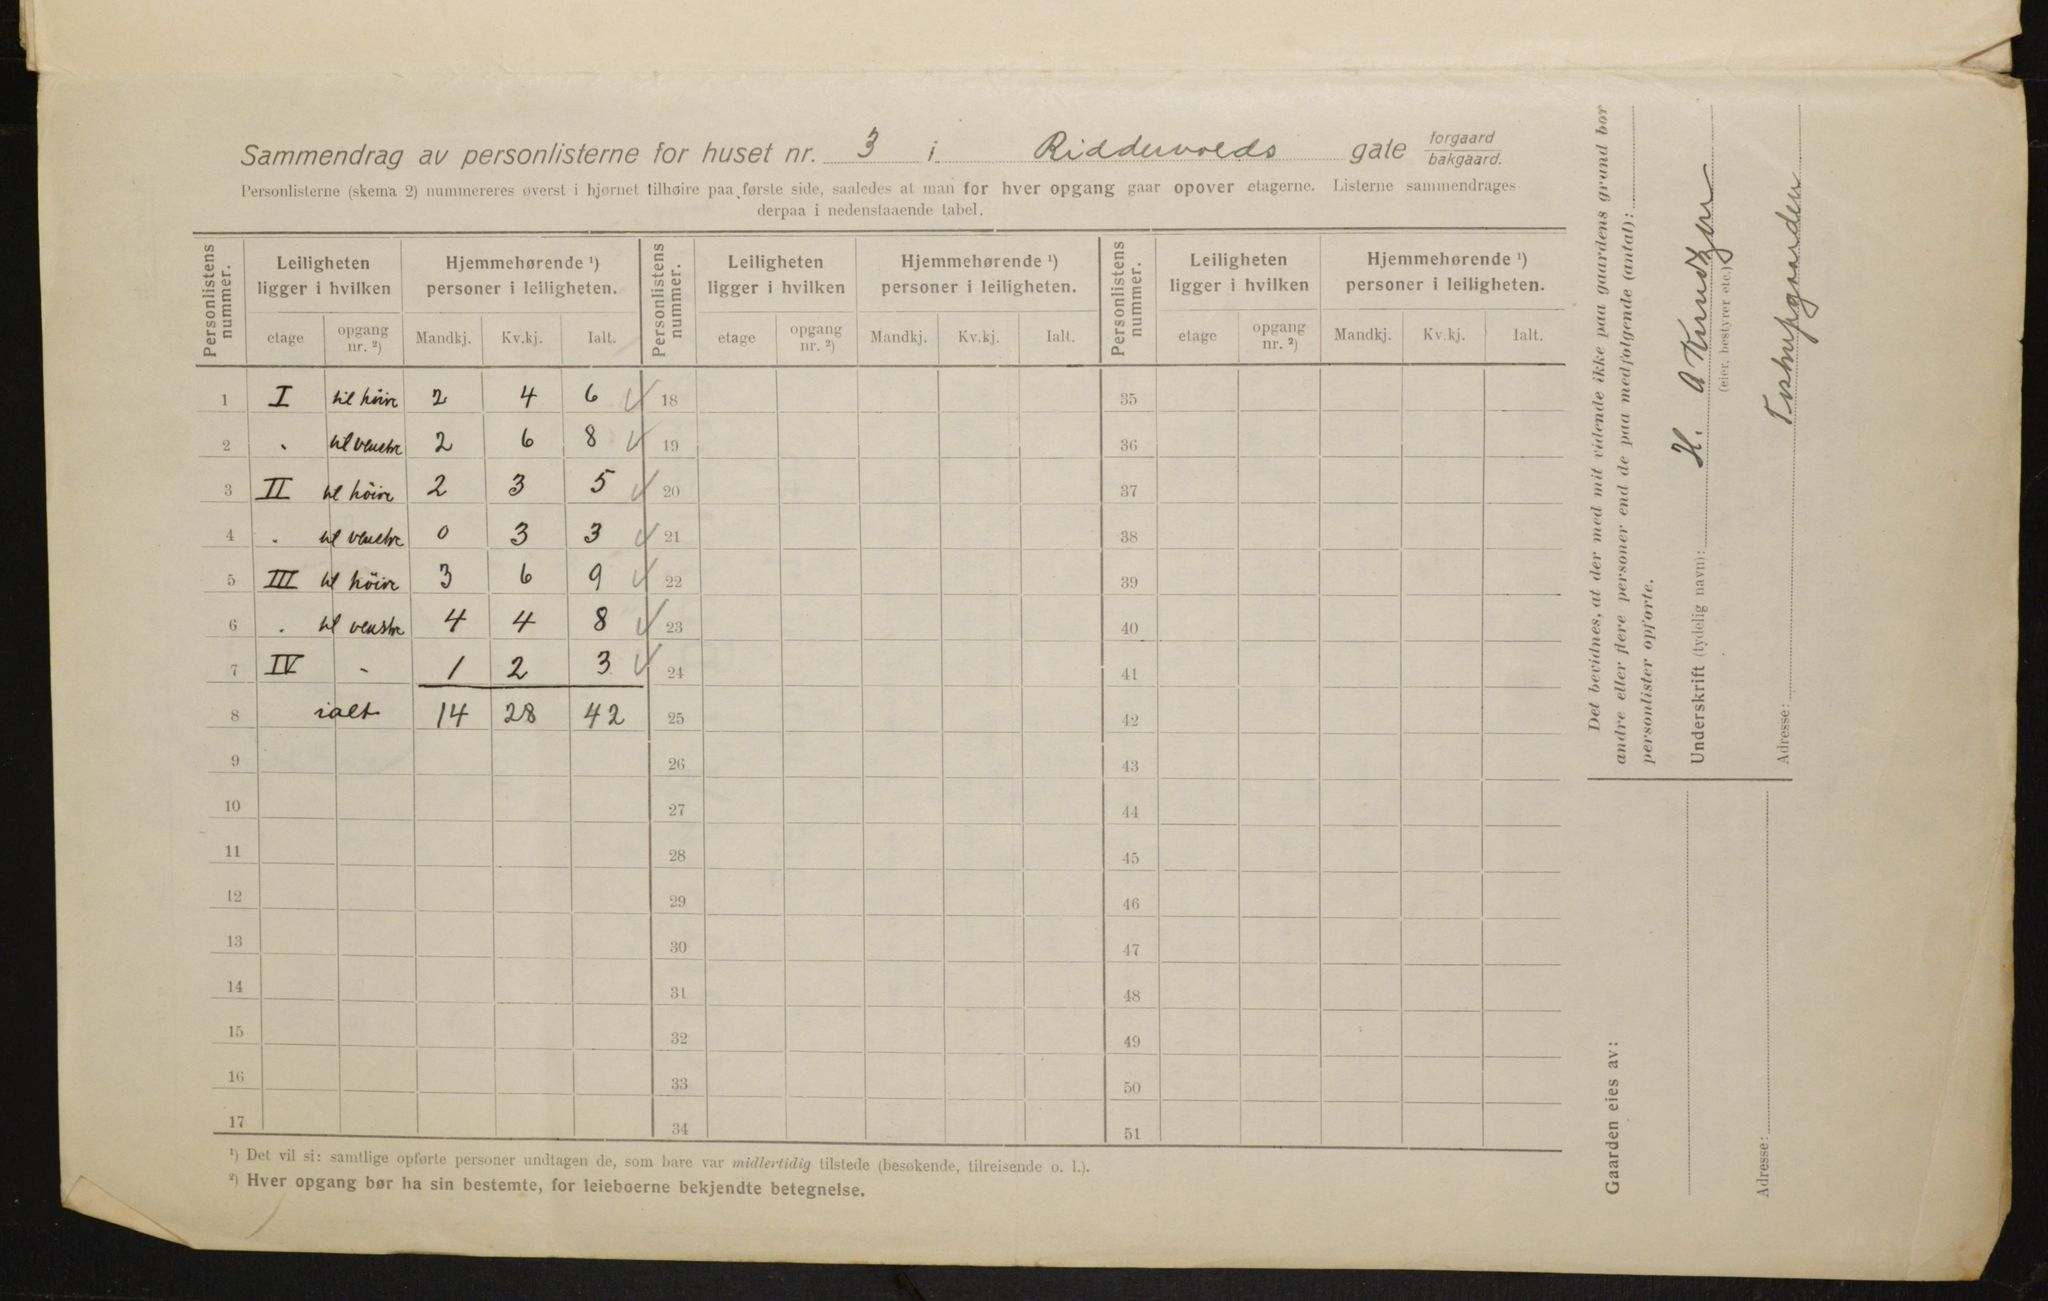 Sammendrag av personlisterne for huset nr. 3 i Riddervolds gate forgaard bakgaard.
Personlisterne (skema 2) nummereres øverst i hjørnet tilhøire paa første side, saaledes at man for hver opgang gaar opover etagerne. Listerne sammendrages
derpaa i nedenstaaende tabel.
Personlistens nummer. Leiligheten ligger i hvilken Hjemmehørende ¹) personer i leiligheten. Personlistens nummer. Leiligheten ligger i hvilken Hjemmehørende ¹) personer i leiligheten. Personlistens nummer. Leiligheten ligger i hvilken Hjemmehørende ¹) personer i leiligheten.
etage opgang nr. ²) Mandkj. Kv.kj. Ialt. etage opgang nr. ²) Mandkj. Kv.kj. Ialt. etage opgang nr. ²) Mandkj. Kv.kj. Ialt.
1 I til höire 2 4 6 18 35
2 " til venstre 2 6 8 19 36
3 II til höire 2 3 5 20 37
4 " til venstre 0 3 3 21 38
5 III til höire 3 6 9 22 39
6 " til venstre 4 4 8 23 40
7 IV - 1 2 3 24 41
8 ialt 14 28 42 25 42
9 26 43
10 27 44
11 28 45
12 29 46
13 30 47
14 31 48
15 32 49
16 33 50
17 34 51
¹) Det vil si: samtlige opførte personer undtagen de, som bare var midlertidig tilstede (besøkende, tilreisende o. l.).
²) Hver opgang bør ha sin bestemte, for leieboerne bekjendte betegnelse.
Det bevidnes, at der med mit vidende ikke paa gaardens grund bor
andre eller flere personer end de paa medfølgende (antal):
personlister opførte.
Underskrift (tydelig navn): H. A Knudzen
(eier, bestyrer etc.)
Adresse:
Gaarden eies av:
Adresse: